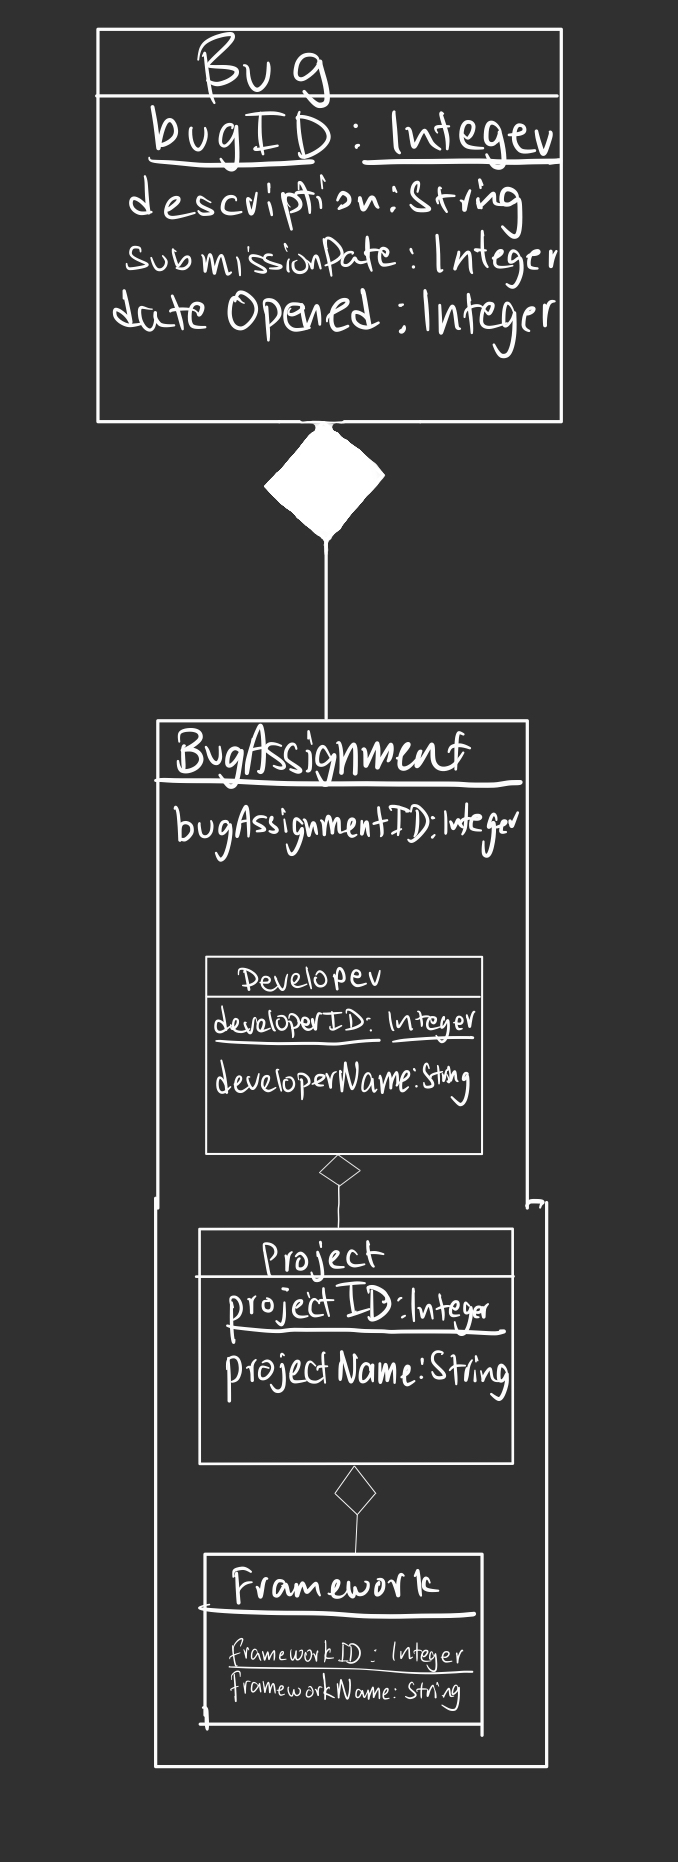 Bug
bugID : Integer
description: String
submissionDate : Integer
date Opened : Integer
BugAssignment
bugAssignmentID: Integer
Developer
developerID: Integer
developerName: String
Project
projectID: Integer
projectName: String
Framework
frameworkID : Integer
frameworkName: String